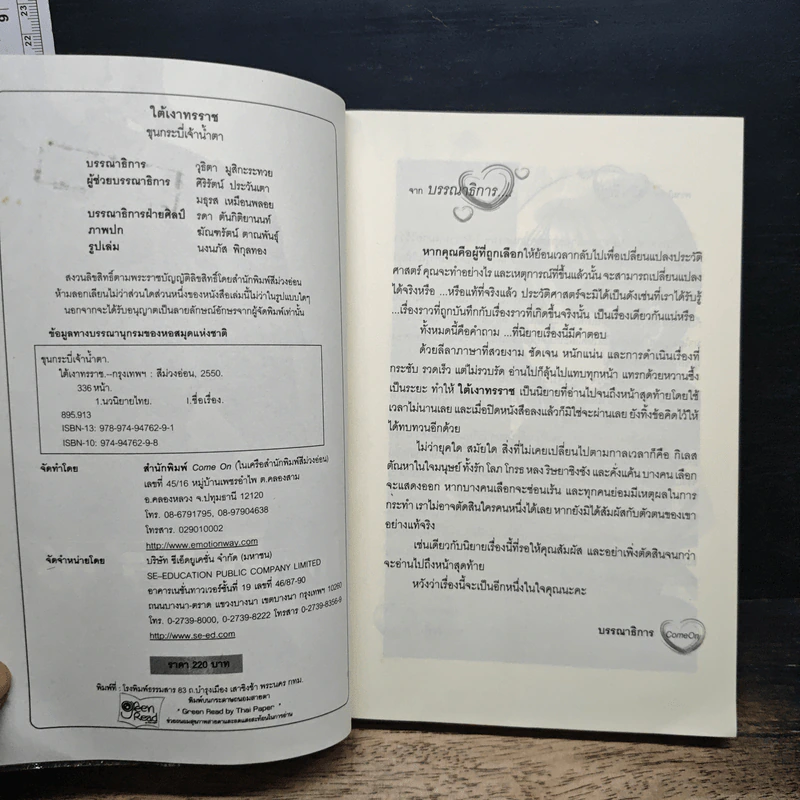 9
23
22
ใต้เงาทรราช
ขุนกระบี่เจ้าน้ำตา
บรรณาธิการ วุธิตา มูสิกะระทวย
ผู้ช่วยบรรณาธิการ ศิริรัตน์ ประวันเตา
มธุรส เหมือนพลอย
บรรณาธิการฝ่ายศิลป์ รดา ตันกิติยานนท์
ภาพปก ฆัณฑรัตน์ ตาณพันธุ์
รูปเล่ม นงนภัส พิกุลทอง
สงวนลิขสิทธิ์ตามพระราชบัญญัติลิขสิทธิ์โดยสำนักพิมพ์สีม่วงอ่อน
ห้ามลอกเลียนไม่ว่าส่วนใดส่วนหนึ่งของหนังสือเล่มนี้ไม่ว่าในรูปแบบใดๆ
นอกจากจะได้รับอนุญาตเป็นลายลักษณ์อักษรจากผู้จัดพิมพ์เท่านั้น
ข้อมูลทางบรรณานุกรมของหอสมุดแห่งชาติ
ขุนกระบี่เจ้าน้ำตา.
ใต้เงาทรราช.--กรุงเทพฯ : สีม่วงอ่อน, 2550.
336 หน้า.
1.นวนิยายไทย. I.ชื่อเรื่อง.
895.913
ISBN-13: 978-974-94762-9-1
ISBN-10: 974-94762-9-8
จัดทำโดย สำนักพิมพ์ Come On (ในเครือสำนักพิมพ์สีม่วงอ่อน)
เลขที่ 45/16 หมู่บ้านเพชรอำไพ ต.คลองสาม
อ.คลองหลวง จ.ปทุมธานี 12120
โทร. 08-6791795, 08-97904638
โทรสาร. 029010002
http://www.emotionway.com
จัดจำหน่ายโดย บริษัท ซีเอ็ดยูเคชั่น จำกัด (มหาชน)
SE-EDUCATION PUBLIC COMPANY LIMITED
อาคารเนชั่นทาวเวอร์ชั้นที่ 19 เลขที่ 46/87-90
ถนนบางนา-ตราด แขวงบางนา เขตบางนา กรุงเทพฯ 10260
โทร. 0-2739-8000, 0-2739-8222 โทรสาร 0-2739-8356-9
http://www.se-ed.com
ราคา 220 บาท
พิมพ์ที่ : โรงพิมพ์ธรรมสาร 83 ถ.บำรุงเมือง เสาชิงช้า พระนคร กทม.
พิมพ์บนกระดาษถนอมสายตา
Green Read
" Green Read by Thai Paper "
ช่วยถนอมสุขภาพสายตาและลดแสงสะท้อนในการอ่าน
จาก บรรณาธิการ...
หากคุณคือผู้ที่ถูกเลือกให้ย้อนเวลากลับไปเพื่อเปลี่ยนแปลงประวัติ
ศาสตร์ คุณจะทำอย่างไร และเหตุการณ์ที่ขึ้นแล้วนั้น จะสามารถเปลี่ยนแปลง
ได้จริงหรือ ...หรือแท้ที่จริงแล้ว ประวัติศาสตร์จะมิได้เป็นดังเช่นที่เราได้รับรู้
...เรื่องราวที่ถูกบันทึกกับเรื่องราวที่เกิดขึ้นจริงนั้น เป็นเรื่องเดียวกันแน่หรือ
ทั้งหมดนี้คือคำถาม ...ที่นิยายเรื่องนี้มีคำตอบ
ด้วยลีลาภาษาที่สวยงาม ชัดเจน หนักแน่น และการดำเนินเรื่องที่
กระชับ รวดเร็ว แต่ไม่รวบรัด อ่านไปก็ลุ้นไปแทบทุกหน้า แทรกด้วยหวานซึ้ง
เป็นระยะ ทำให้ ใต้เงาทรราช เป็นนิยายที่อ่านไปจนถึงหน้าสุดท้ายโดยใช้
เวลาไม่นานเลย และเมื่อปิดหนังสือลงแล้วก็มิใช่จะผ่านเลย ยังทิ้งข้อคิดไว้ให้
ได้ทบทวนอีกด้วย
ไม่ว่ายุคใด สมัยใด สิ่งที่ไม่เคยเปลี่ยนไปตามกาลเวลาก็คือ กิเลส
ตัณหาในใจมนุษย์ ทั้งรัก โลภ โกรธ หลง ริษยาชิงชัง และคั่งแค้น บางคน เลือก
จะแสดงออก หากบางคนเลือกจะซ่อนเร้น และทุกคนย่อมมีเหตุผลในการ
กระทำ เราไม่อาจตัดสินใครคนหนึ่งได้เลย หากยังมิได้สัมผัสกับตัวตนของเขา
อย่างแท้จริง
เช่นเดียวกับนิยายเรื่องนี้ที่รอให้คุณสัมผัส และอย่าเพิ่งตัดสินจนกว่า
จะอ่านไปถึงหน้าสุดท้าย
หวังว่าเรื่องนี้จะเป็นอีกหนึ่งในใจคุณนะคะ
บรรณาธิการ ComeOn